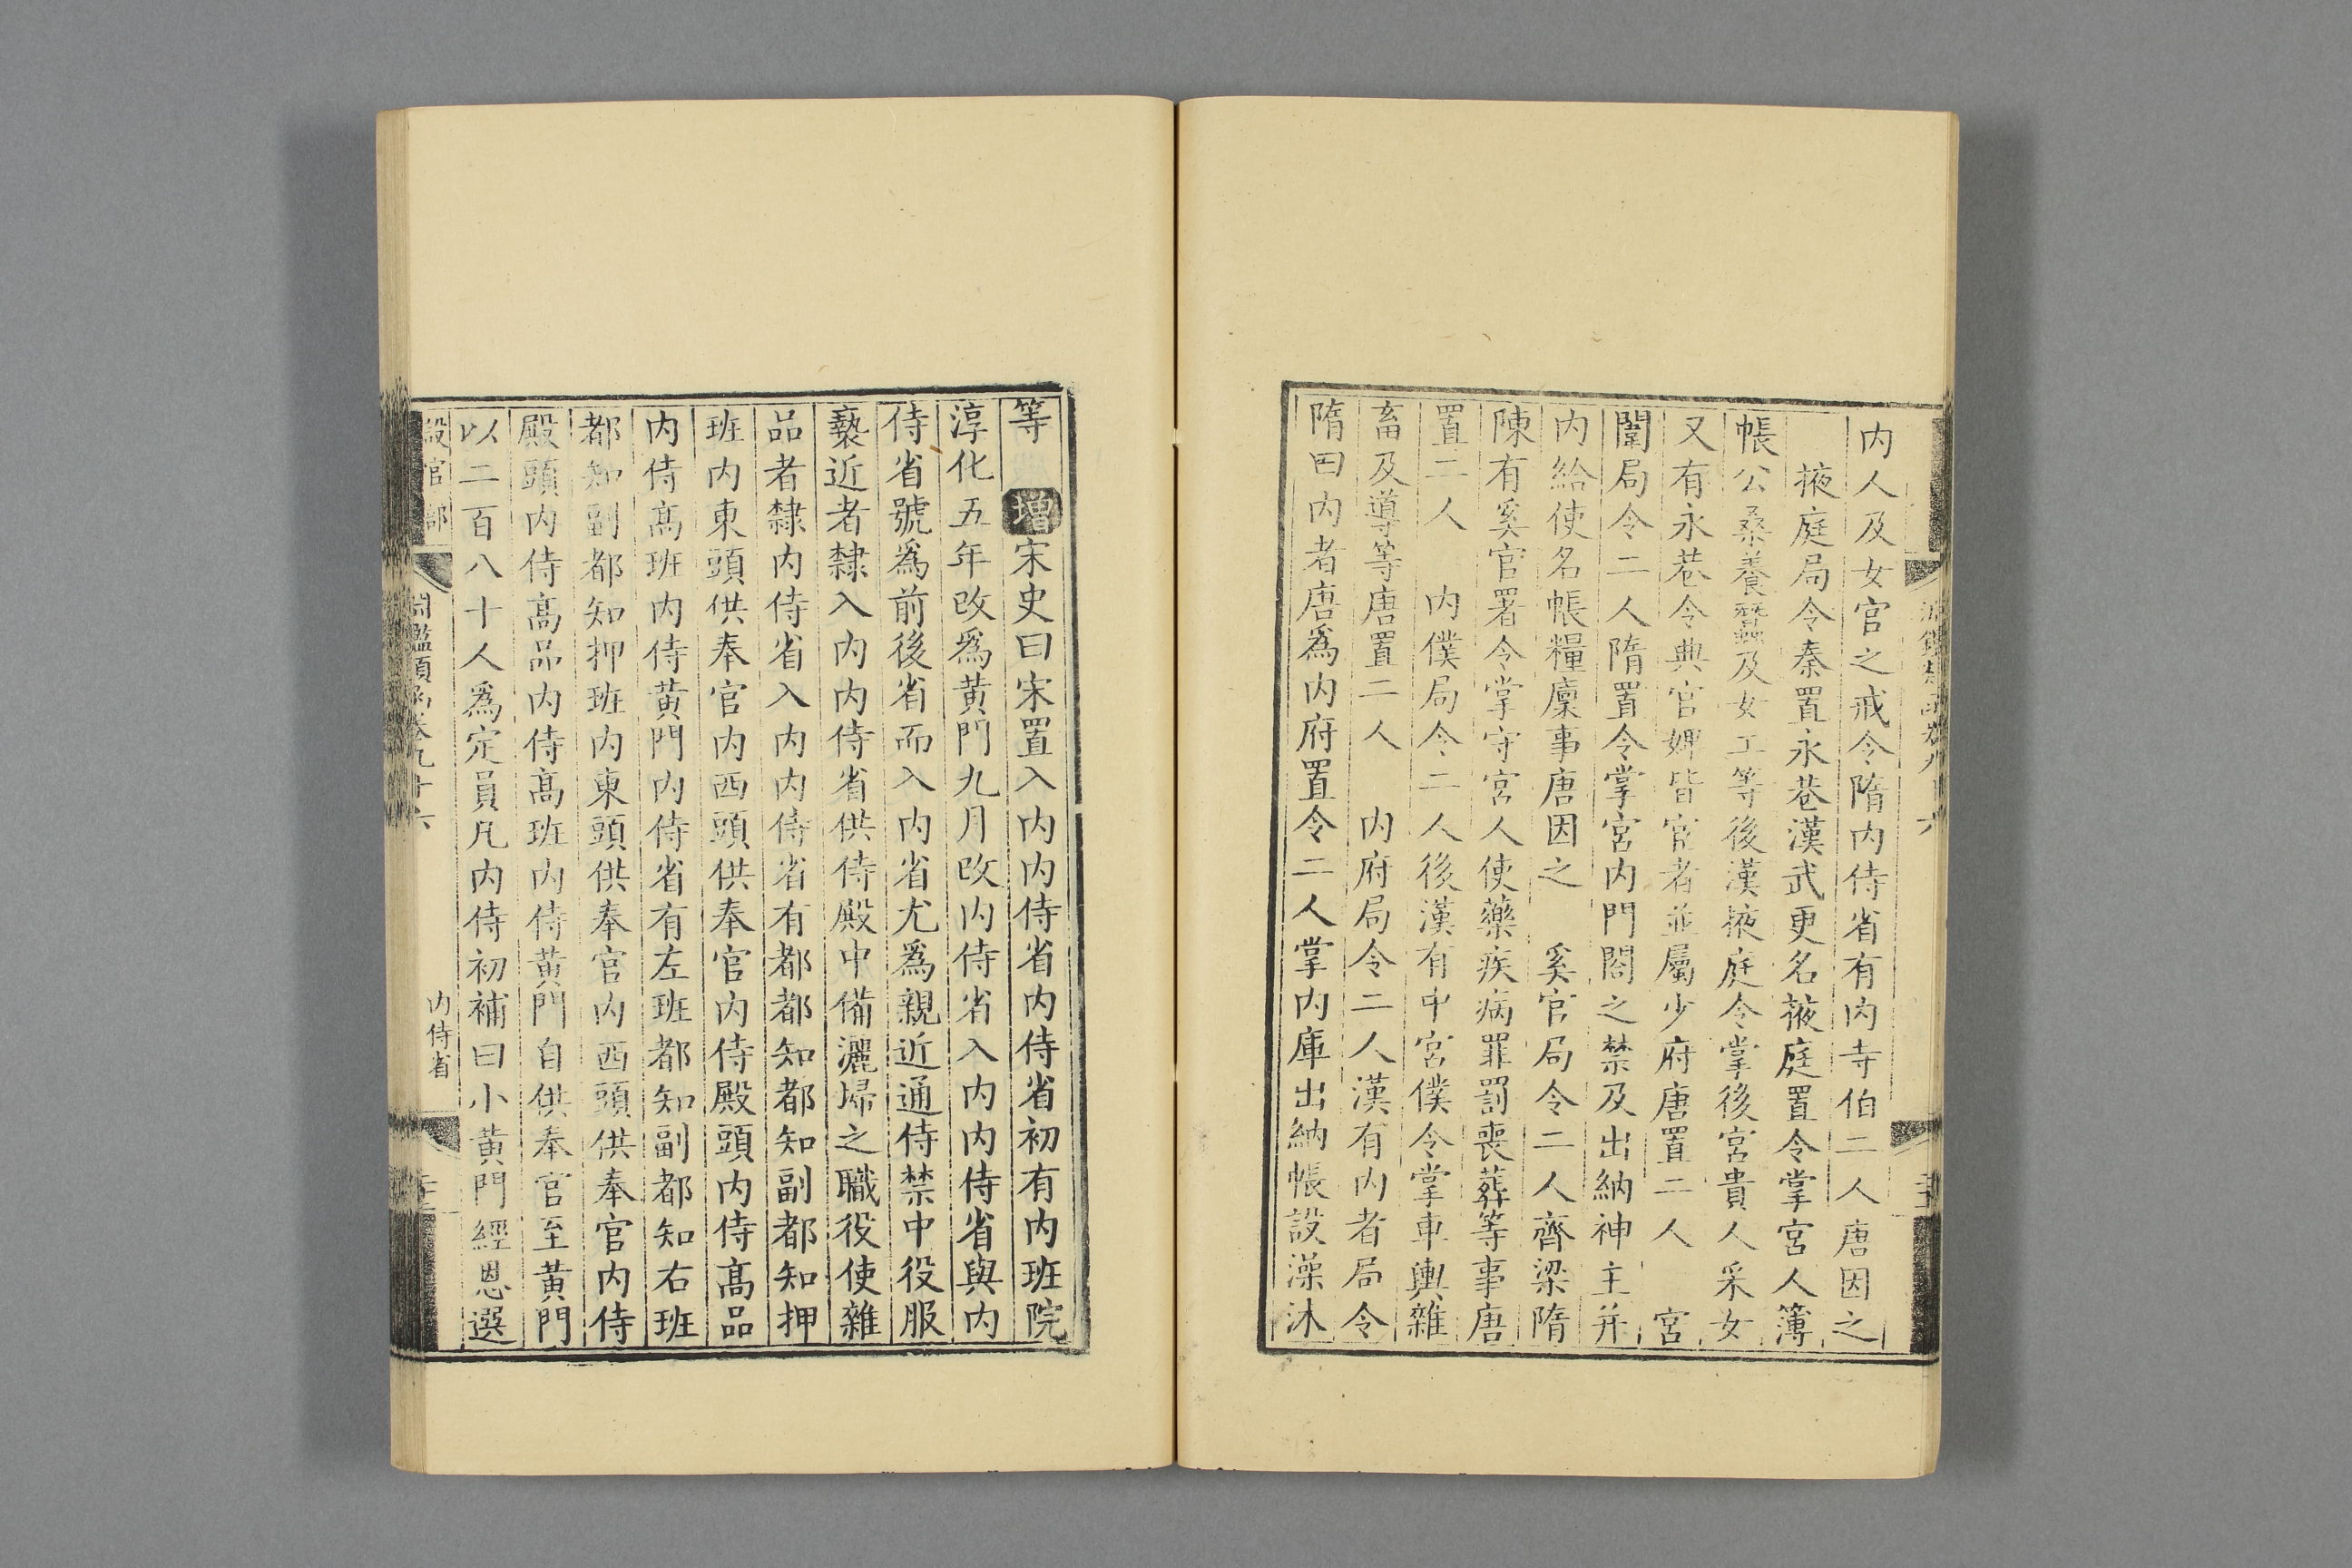 内人及女官之戒令隋内侍省有内寺伯二人唐因之
掖庭局令秦置永巷漢武更名掖庭置令掌宮人簿
帳公桑養蠶及女工等後漢掖庭令掌後宮貴人采女
又有永巷令典官婢皆宦者並屬少府唐置二人　宮
闈局令二人隋置令掌宮内門閤之禁及出納神主并
内給使名帳糧廩事唐因之　奚官局令二人齊梁隋
陳有奚官署令掌守宮人使藥疾病罪罰喪葬等事唐
置二人　内僕局令二人後漢有中宮僕令掌車輿雜
畜及導等唐置二人　内府局令二人漢有内者局令
隋曰内者唐爲内府置令二人掌内庫出納帳設澡沐
等　增宋史曰宋置入内内侍省内侍省初有内班院
淳化五年改爲黄門九月改内侍省入内内侍省與内
侍省號爲前後省而入内省尤爲親近通侍禁中役服
褻近者隸入内内侍省供侍殿中備灑埽之職役使雜
品者隸内侍省入内内侍省有都都知都知副都知押
班内東頭供奉官内西頭供奉官内侍殿頭内侍髙品
内侍髙班内侍黄門内侍省有左班都知副都知右班
都知副都知押班内東頭供奉官内西頭供奉官内侍
殿頭内侍髙品内侍髙班内侍黄門自供奉官至黄門
以二百八十人爲定員凡内侍初補曰小黄門經恩選
設官部
淵鑑類函卷九十六
内侍省